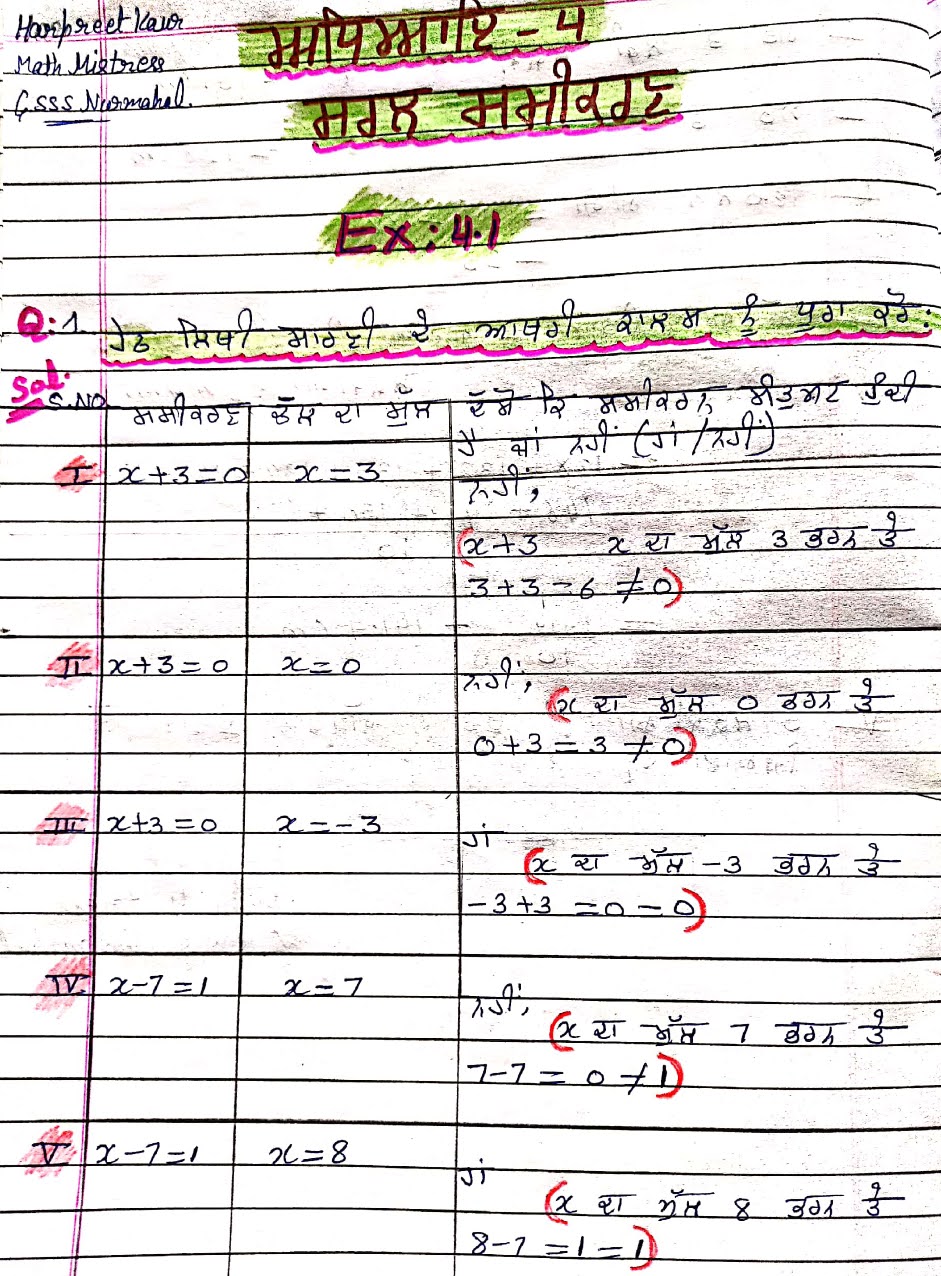 Harpreet Kaur
Math Mistress
GSSS Nurmahal.
ਅਧਿਆਇ - 4
ਸਰਲ ਸਮੀਕਰਣ
Ex: 4.1
Q: 1 ਹੇਠ ਲਿਖੀ ਸਾਰਣੀ ਦੇ ਆਖਰੀ ਕਾਲਮ ਨੂੰ ਪੂਰਾ ਕਰੋ:
Sol.
S.NO ਸਮੀਕਰਣ ਚੱਲ ਦਾ ਮੁੱਲ ਦੱਸੋ ਕਿ ਸਮੀਕਰਨ ਸੰਤੁਸ਼ਟ ਹੁੰਦੀ
ਹੈ ਜਾਂ ਨਹੀਂ (ਹਾਂ / ਨਹੀਂ)
I x+3=0 x=3 ਨਹੀਂ,
(x+3 x ਦਾ ਮੁੱਲ 3 ਭਰਨ ਤੇ
3+3=6 ≠0)
II x+3=0 x=0 ਨਹੀਂ,
(x ਦਾ ਮੁੱਲ 0 ਭਰਨ ਤੇ
0+3=3 ≠0)
III x+3=0 x=-3 ਹਾਂ
(x ਦਾ ਮੁੱਲ -3 ਭਰਨ ਤੇ
-3+3 =0=0)
IV. x-7=1 x=7 ਨਹੀਂ,
(x ਦਾ ਮੁੱਲ 7 ਭਰਨ ਤੇ
7-7= 0 ≠1)
V x-7=1 x=8 ਹਾਂ
(x ਦਾ ਮੁੱਲ 8 ਭਰਨ ਤੇ
8-7=1=1)